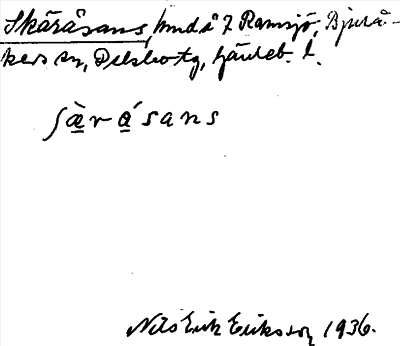 Skäråsans, hmd å 7 Ramsjö, Bjurå-
kers sn, Delsbo tg, Gävleb. l.
ʃæ̀r á sans
Nils Erik Eriksson 1936.